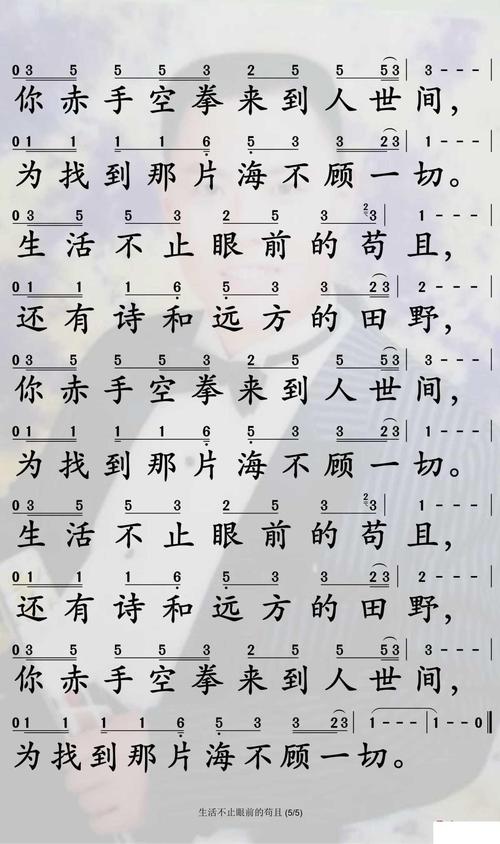 0 3 5 5 5 3 2 5 5 5 3 | 3 - - - |
你赤手空拳来到人世间，
0 1 1 1 1 6 5 3 3 2 3 | 1 - - - |
为找到那片海不顾一切。
0 3 5 5 3 2 5 3 2 3 | 1 - - - |
生活不止眼前的苟且，
0 1 1 1 6 5 3 3 2 3 | 2 - - - |
还有诗和远方的田野，
0 3 5 5 5 3 2 5 5 5 3 | 3 - - - |
你赤手空拳来到人世间，
0 1 1 1 1 6 5 3 3 2 3 | 1 - - - |
为找到那片海不顾一切。
0 3 5 5 3 2 5 3 2 3 | 1 - - - |
生活不止眼前的苟且，
0 1 1 1 6 5 3 3 2 3 | 2 - - - |
还有诗和远方的田野，
0 3 5 5 5 3 2 5 5 5 3 | 3 - - - |
你赤手空拳来到人世间，
0 1 1 1 1 6 5 3 3 2 3 | 1 - - - | 1 - - 0 ||
为找到那片海不顾一切。
生活不止眼前的苟且 (5/5)